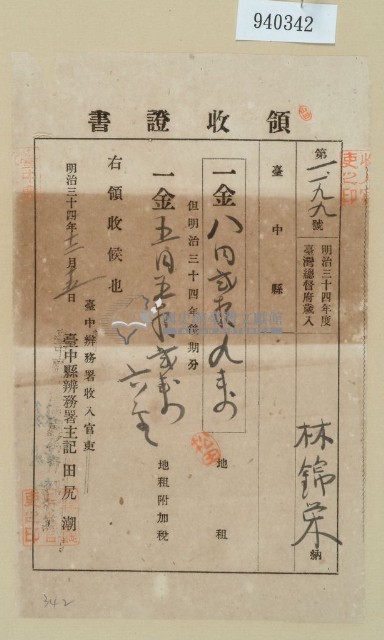 940342
領收證書
第一九九號
明治三十四年度
臺灣總督府歲入
林錦榮 納
臺中縣
一金八円貳拾九
地租
但明治三十四年後期分
一金五円五拾 六
地租附加稅
右領收候也
明治三十四年十二月五日
臺中辨務署收入官吏
臺中縣辨務署主記 田尻 潮
342